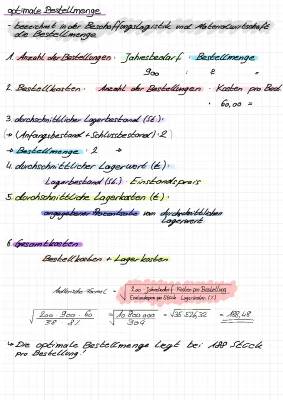 optimale Bestellmenge
- bezeichnet in der Beschaffungslogistik und Materialwirtschaft
die Bestellmenge
1. Anzahl der Bestellungen · Jahresbedarf : Bestellmenge
900 : 2 =
2. Bestellkosten · Anzahl der Bestellungen · Kosten pro Best.
· 60,00 =
3. durchschnittlicher Lagerbestand (St.) ·
→ (Anfangsbestand + Schlussbestand) : 2
→ Bestellmenge : 2 →
4. durchschnittlicher Lagerwert (€) ·
Lagerbestand (St.) · Einstandspreis
5. durchschnittliche Lagerkosten (€) ·
angegebener Prozentsatz von durchschnittlichen
Lagerwert
6. Gesamtkosten
Bestellkosten + Lagerkosten
Formel = √ 200 · Jahresbedarf · Kosten pro Bestellung
Einstandspreis pro Stück · Lagerkosten (%)
√ 200 · 900 · 60 = √ 10 800 000 = √35 526,32 = 188,48
38 8% 304
↳ Die optimale Bestellmenge liegt bei 188 Stück
pro Bestellung!